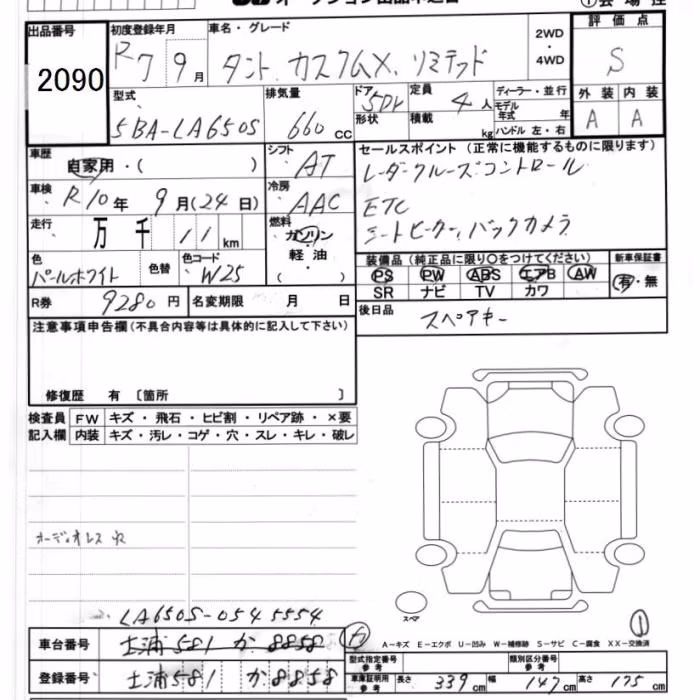 出品番号
2090
初度登録年月
R7 9月
車名・グレード
タント カスタムX リミテッド
2WD
・
4WD
評価点
S
外装 内装
A A
型式
5BA-LA650S
排気量
660 cc
ドア
形状
5Dr
定員 4人
積載 kg
ディーラー・並行
モデル
年式 年
ハンドル 左・右
車歴
自家用・( )
シフト
AT
車検
R10年 9月(24日)
冷房
AAC
走行
万 千 11 km
燃料
ガソリン
軽・油
( )
色
パールホワイト
色替
色コード
W25
R券 9280円
名変期限 月 日
セールスポイント (正常に機能するものに限ります)
レーダークルーズコントロール
ETC
シートヒーター、バックカメラ
装備品 (純正品に限り○をつけてください)
PS PW ABS エアB AW
SR ナビ TV カワ
新車保証書
有・無
後日品
スペアキー
注意事項申告欄 (不具合内容等は具体的に記入して下さい)
修復歴 有 〔箇所 〕
検査員
記入欄
FW キズ・飛石・ヒビ割・リペア跡・×要
内装 キズ・汚レ・コゲ・穴・スレ・キレ・破レ
オーディオレス
LA650S-0545554
スペア
A-キズ E-エクボ U-凹み W-補修跡 S-サビ C-腐食 XX-交換済
車台番号 土浦581 か 8858
登録番号 土浦581 か 8858
型式指定番号
参考
類別区分番号
参考
車庫証明用
参考
長さ 339cm 幅 147cm 高さ 175cm